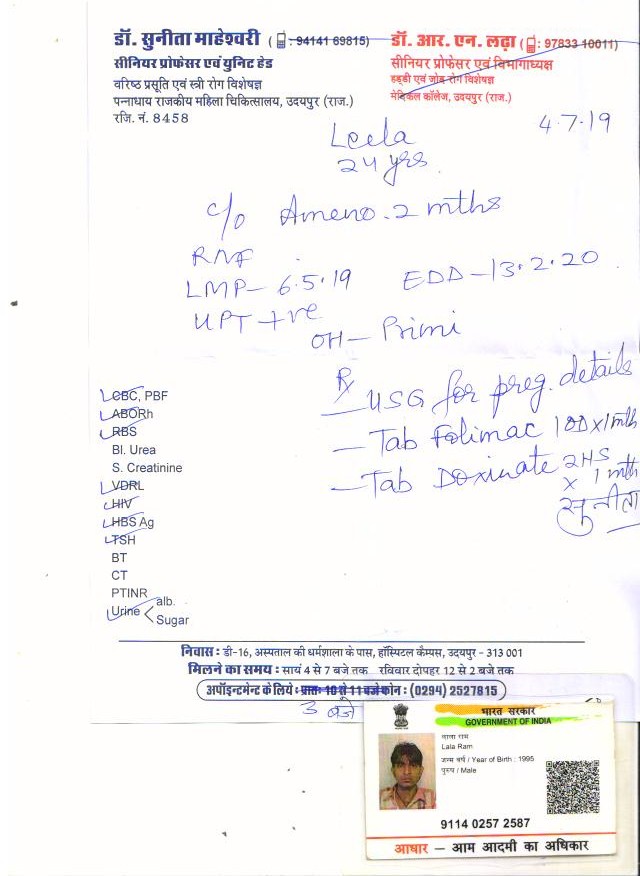 डॉ. सुनीता माहेश्वरी ( : 94141 69815)
सीनियर प्रोफेसर एवं युनिट हेड
वरिष्ठ प्रसूति एवं स्त्री रोग विशेषज्ञ
पन्नाधाय राजकीय महिला चिकित्सालय, उदयपुर (राज.)
रजि. नं. 8458
डॉ. आर. एन. लढ़ा ( : 97833 10011)
सीनियर प्रोफेसर एवं विभागाध्यक्ष
हड्डी एवं जोड़ रोग विशेषज्ञ
मेडिकल कॉलेज, उदयपुर (राज.)
4.7.19
Leela
24 yrs.
c/o Ameno. 2 mths
RMF
LMP- 6.5.19 EDD-13.2.20
UPT +ve
OH- Primi
Rx
- USG for preg. details
- Tab Folimac 1 OD x 1 mth
- Tab Doxinate 2HS
x 1 mth
सुनीता
CBC, PBF
ABORh
RBS
Bl. Urea
S. Creatinine
VDRL
HIV
HBS Ag
TSH
BT
CT
PTINR
Urine < alb.
Sugar
निवास : डी-16, अस्पताल की धर्मशाला के पास, हॉस्पिटल कैम्पस, उदयपुर - 313 001
मिलने का समय : सायं 4 से 7 बजे तक रविवार दोपहर 12 से 2 बजे तक
अपॉइन्टमेन्ट के लिये : प्रातः 10 से 11 बजे फोन : (0294) 2527815
3 बजे
भारत सरकार
GOVERNMENT OF INDIA
लाला राम
Lala Ram
जन्म वर्ष / Year of Birth : 1995
पुरुष / Male
9114 0257 2587
आधार – आम आदमी का अधिकार